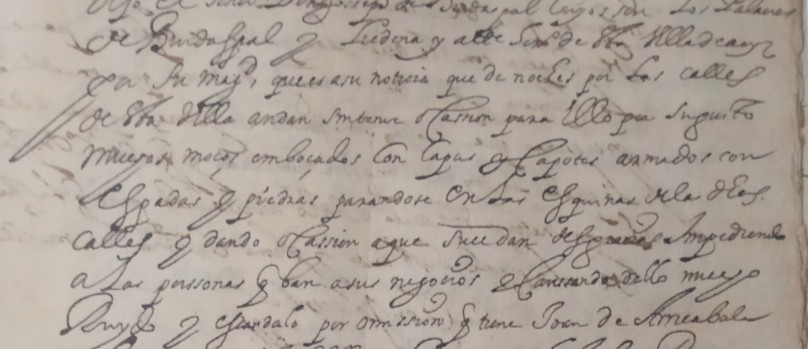 Dijo el Señor Don Joseph de
de Guidaspal y Ledena y alle. mr. de sta Villa de
por su magd, que es asu noticia que de noches por las calles
de sta Villa andan sin tener ocassion para ello por su gusto
muchos moços embocados con capas y capotes armados con
espadas y piedras parandose en las esquinas de las
calles y dando ocassion a que sucedan desgracias Impediendo
a las personas q ban a sus negocios y Caussando dello mucho
Ruydo y escandalo por omission q tiene Joan de Arrecabale